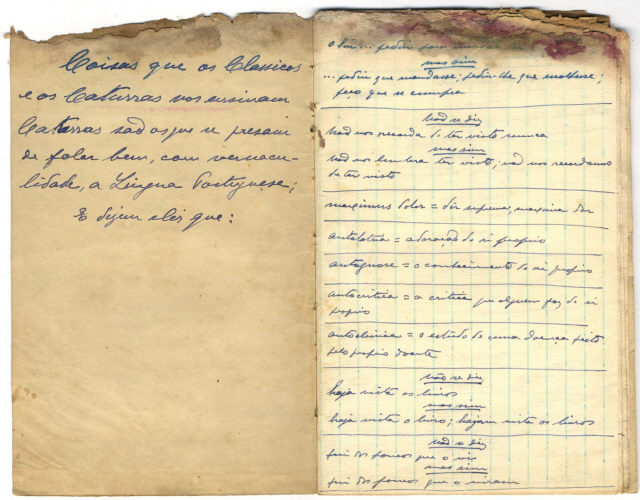 Coisas que os Classicos
e os Caturras nos ensinam
Caturras são os que se presam
de falar bem, com vernacu-
lidade, a Língua Portuguesa;
E dizem eles que:
mas sim
... pedir que mandasse; pedir-lhe que mostrasse;
peço que se cumpra
não se diz
Não nos recorda de ter visto nunca
mas sim
não nos lembra ter visto; não nos recordamos
de ter visto
maximus dolor = dor suprema; maxima dor
autolatria = adoração de si proprio
autognose = o conhecimento de si proprio
autocritica = a critica que alguem faz de si
proprio
autoclinica = o estudo de uma doença feito
pelo proprio doente
não se diz
haja vista os livros
mas sim
haja vista o livro; hajam vista os livros
não se diz
fui dos poucos que o viu
mas sim
fui dos poucos que o viram